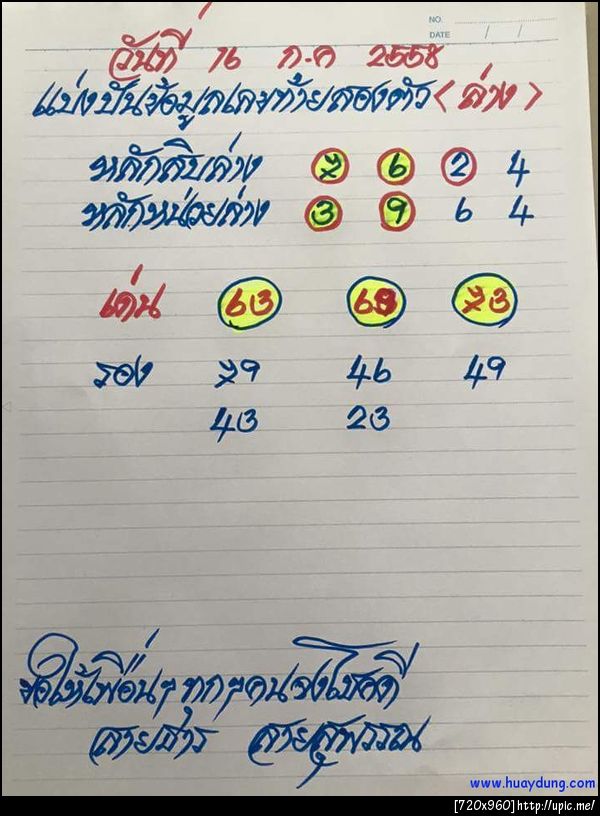 NO.
DATE / /
วันที่ 16 ก.ค 2558
แบ่งปันข้อมูลเลขท้ายสองตัว <ล่าง>
หลักสิบล่าง 7 6 2 4
หลักหน่วยล่าง 3 9 6 4
เด่น 63 69 73
รอง 79 46 49
43 23
ขอให้เพื่อนๆทุกๆคนจงโชคดี
สายธาร สายสุพรรณ
www.huaydung.com
[720x960]http://upic.me/